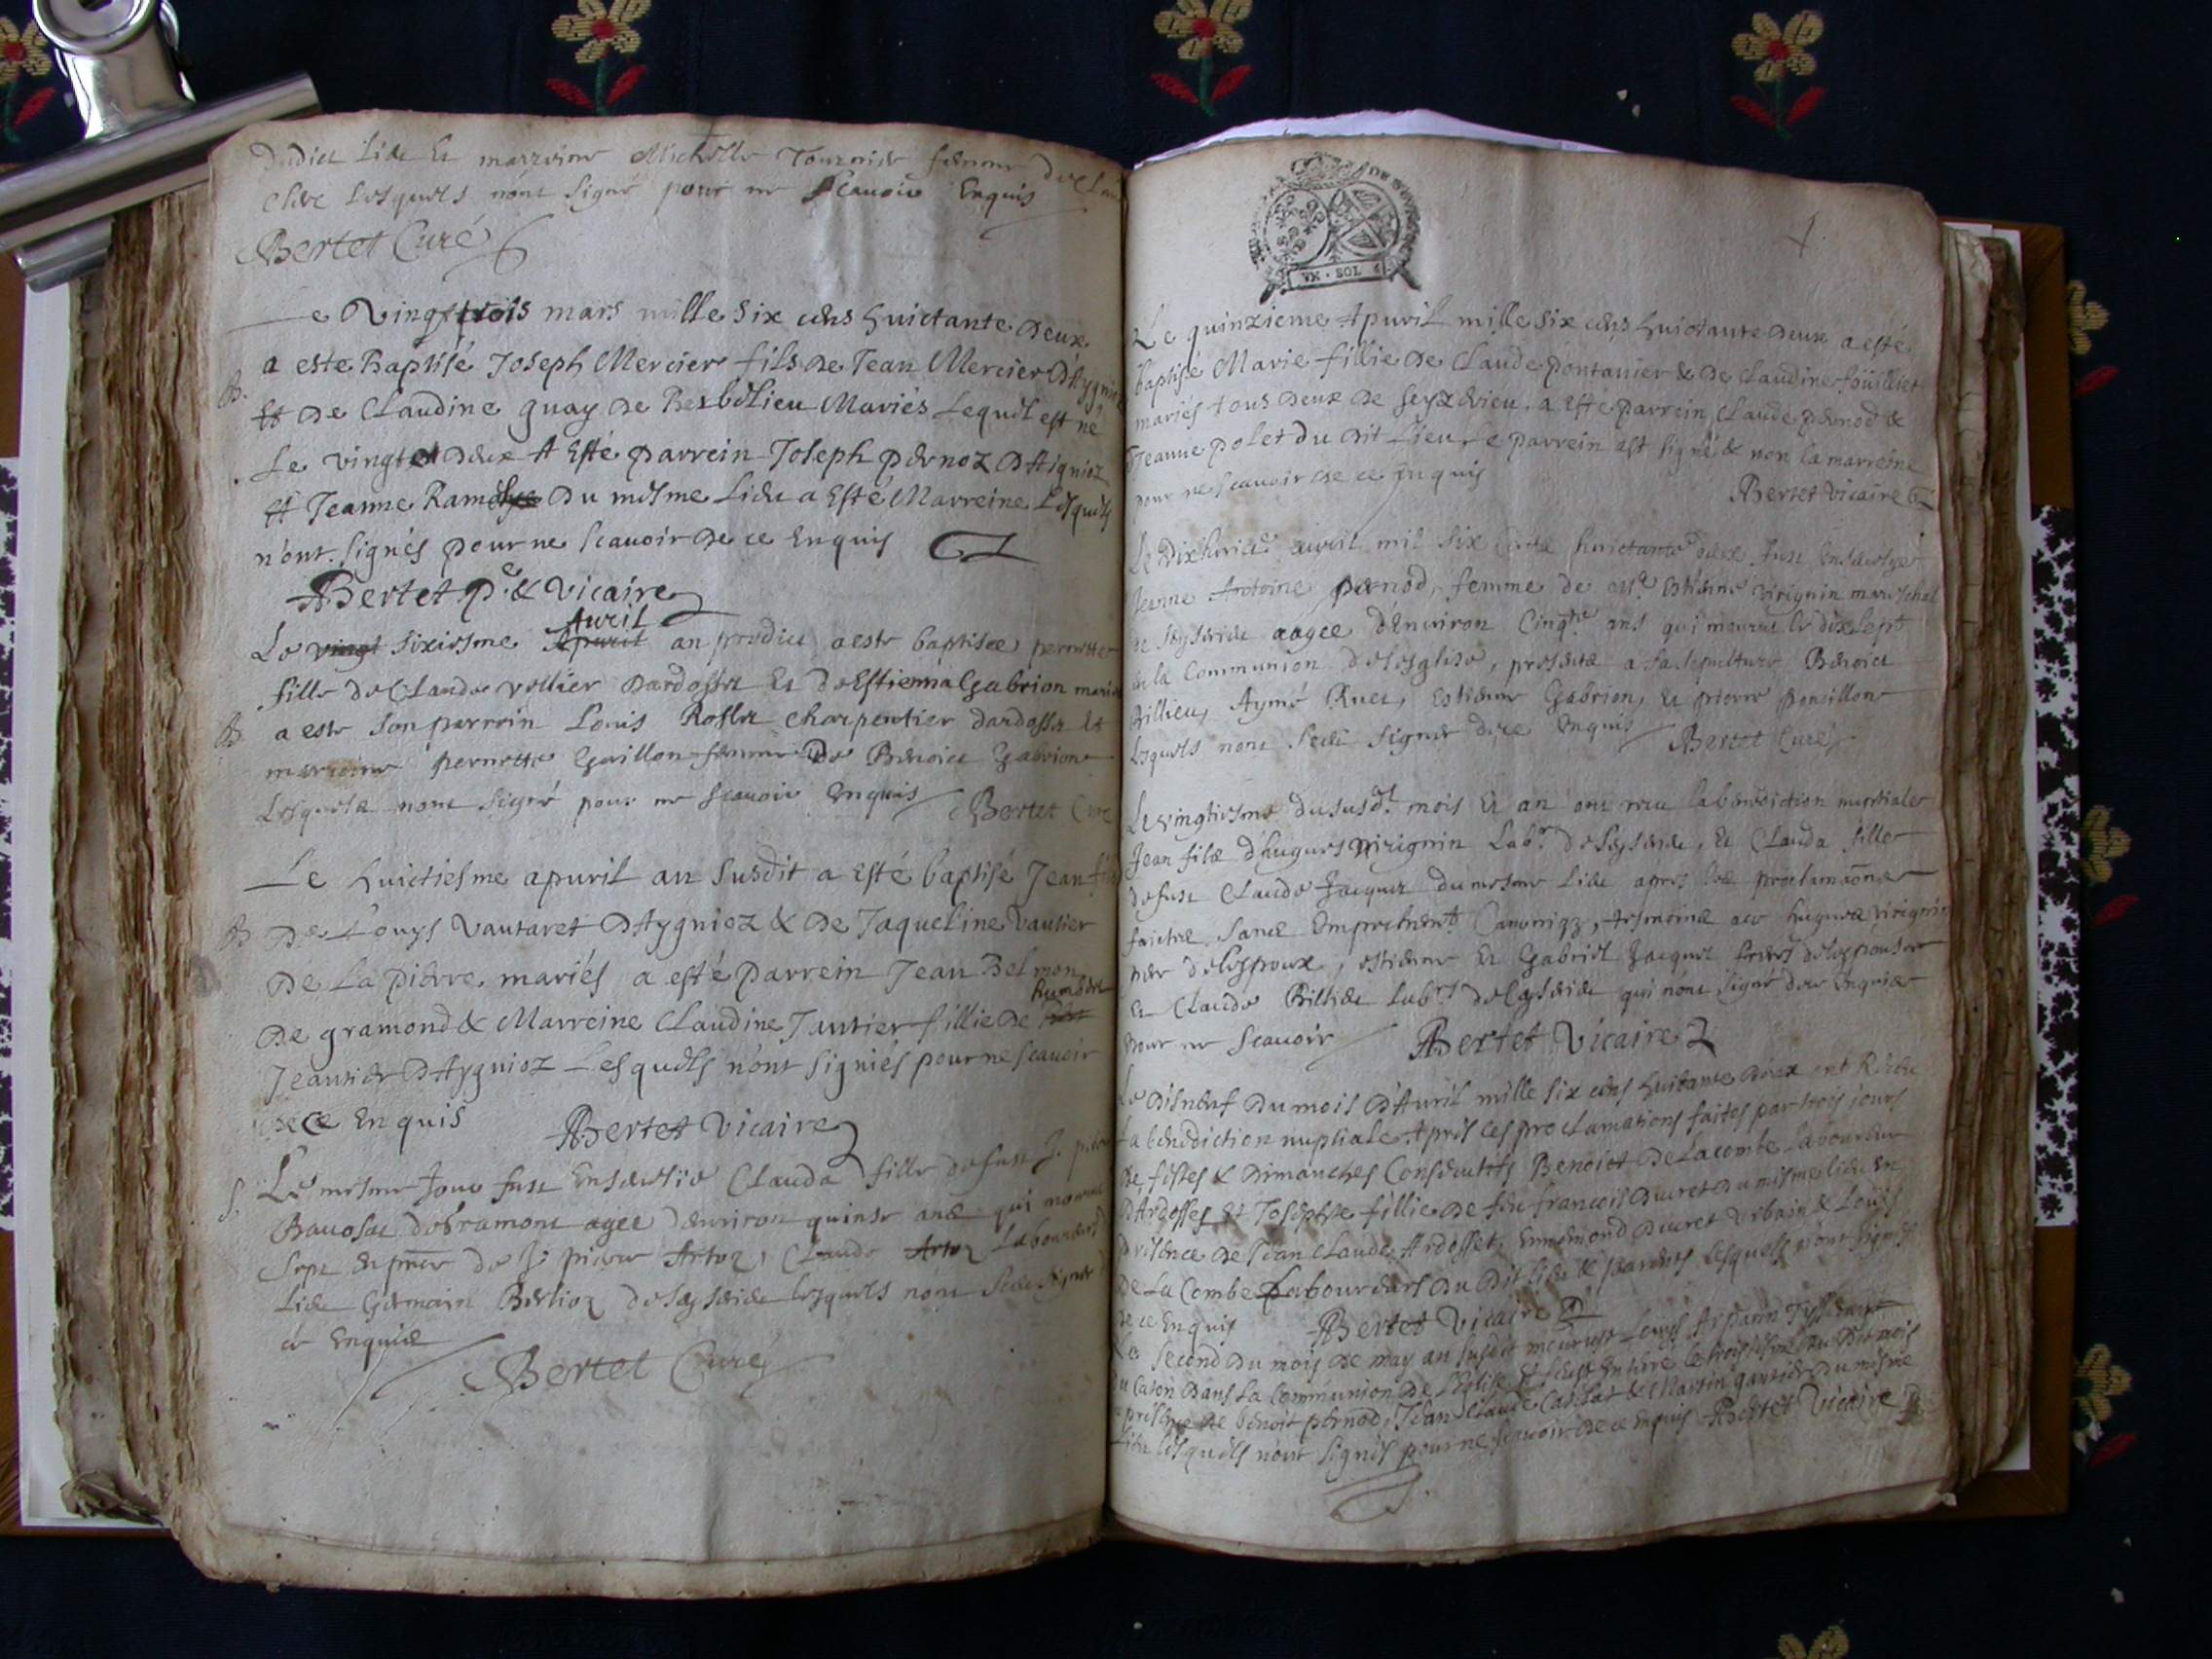 dudict lieu et marreine Michelle Tournier femme de Clau
lesquels nont signé pour ne scauoir Enquis
Bertet Curé
Le Vingt trois mars mille six cens huictante deux
a este Baptisé Joseph Mercier fils de Jean Mercier D'Aygnioz
Et de Claudine guay de Mariés Lequel est né
Le vingt et deux A Esté parrein Joseph pernoz D'Aignioz
Et Jeanne du mesme Lieu a Esté Marreine Lesquels
n'ont signés pour ne scauoir de ce Enquis
Bertet p. & Vicaire
Auril
Le vingt sixiesme Apuril an predict a este baptisee pernette
fille de Claude vollier dardosset et de Estiema Gabrion mariés
B. a este son parrein Louis Rosset charpentier dardosset et
marreine pernette Guillon femme De Benoict Gabrion
Lesquels nont signé pour ne scauoir Enquis Bertet Curé
Le huictiesme apuril an susdit a esté baptisé Jean fils
B. De Louys Vautaret D'Aygnioz & de Jaqueline Vautier
De La pierre mariés a esté parrein Jean Belmon
humbert
de gramond & Marreine Claudine Jantier fillie de
Jeantier D'Aygnioz Lesquels n'ont signiés pour ne scauoir
de ce Enquis Bertet Vicaire
S. Le mesme Jour fust Enseuelie Clauda fille de fust
agee denuiron quinse ans qui mourut
de pierre Artoz, Claude Artoz Laboureurs
Lieu Germain Berlioz de Seyserieu lesquels nont sceu signer
ce Enquis
Bertet Curé
VN · SOL
Le quinzieme Apuril mille six cens huictante deux a esté
baptisé Marie fillie de Claude pontanier & de Claudine foüilliet
mariés tous deux de seyzerieu, a esté parrein Claude pernod &
Jeanne polet du dit Lieu, Le parrein est signé & non la marreine
pour ne scauoir de ce Enquis
Bertet Vicaire
Le Dixhuict auril mil six cents huictante deux fust Enseuelye
Jeanne Antoine pernod, femme de Mre Estienne Virignin mareschal
de Seyserieu aagee d'Enuiron Cinqte ans qui mourut le dixsept
en la Communion de lesglise, presents a sa sepulture Benoict
Billieu, Aymé Ruet, Estienne Gabrion, et pierre pouillon
Lesquels nont sceu signer dece Enquis Bertet Curé
Le vingtiesme du susdt. mois et an ont receu la benediction nuptiale
Jean fils d'hugues Virignin Labr. de Seyserieu, et Clauda fille
defust Claude Jacquet dumesme Lieu apres les proclamaõns
faictes sans Empechemt Canonique, tesmoins ace hugues Virignin
per delespoux, estienne et Gabriel Jacquet freres de lespouse
et Claude Billieu Labrs de Seyserieu qui nont signé dece Enquis
pour ne scauoir Bertet Vicaire
Le disneuf du mois D'Auril mille six cens huitante deux ont Receu
La benediction nuptiale Apres les proclamations faites par trois jours
de festes & Dimanches Consecutifs Benoict de Lacombe Laboureur
D'Ardosset Et Josephte fillie de feu francois ducret du mesme lieu en
presence de Jean Claude Ardosset, Ennemond ducret Vrbain & Loüis
de La Combe Laboureurs du dit lieu & parents Lesquels n'ont signés
de ce Enquis Bertet Vicaire
Le second du mois de may an susdit mourust Louys
du Caton Dans La Communion de L'Eglise Et feust Entérré le troisiesme du dit mois
presence de benoit pernod, Jean Claude & Martin gautier du mesme
Lieu lesquels n'ont signés pour ne scauoir de ce Enquis Bertet Vicaire